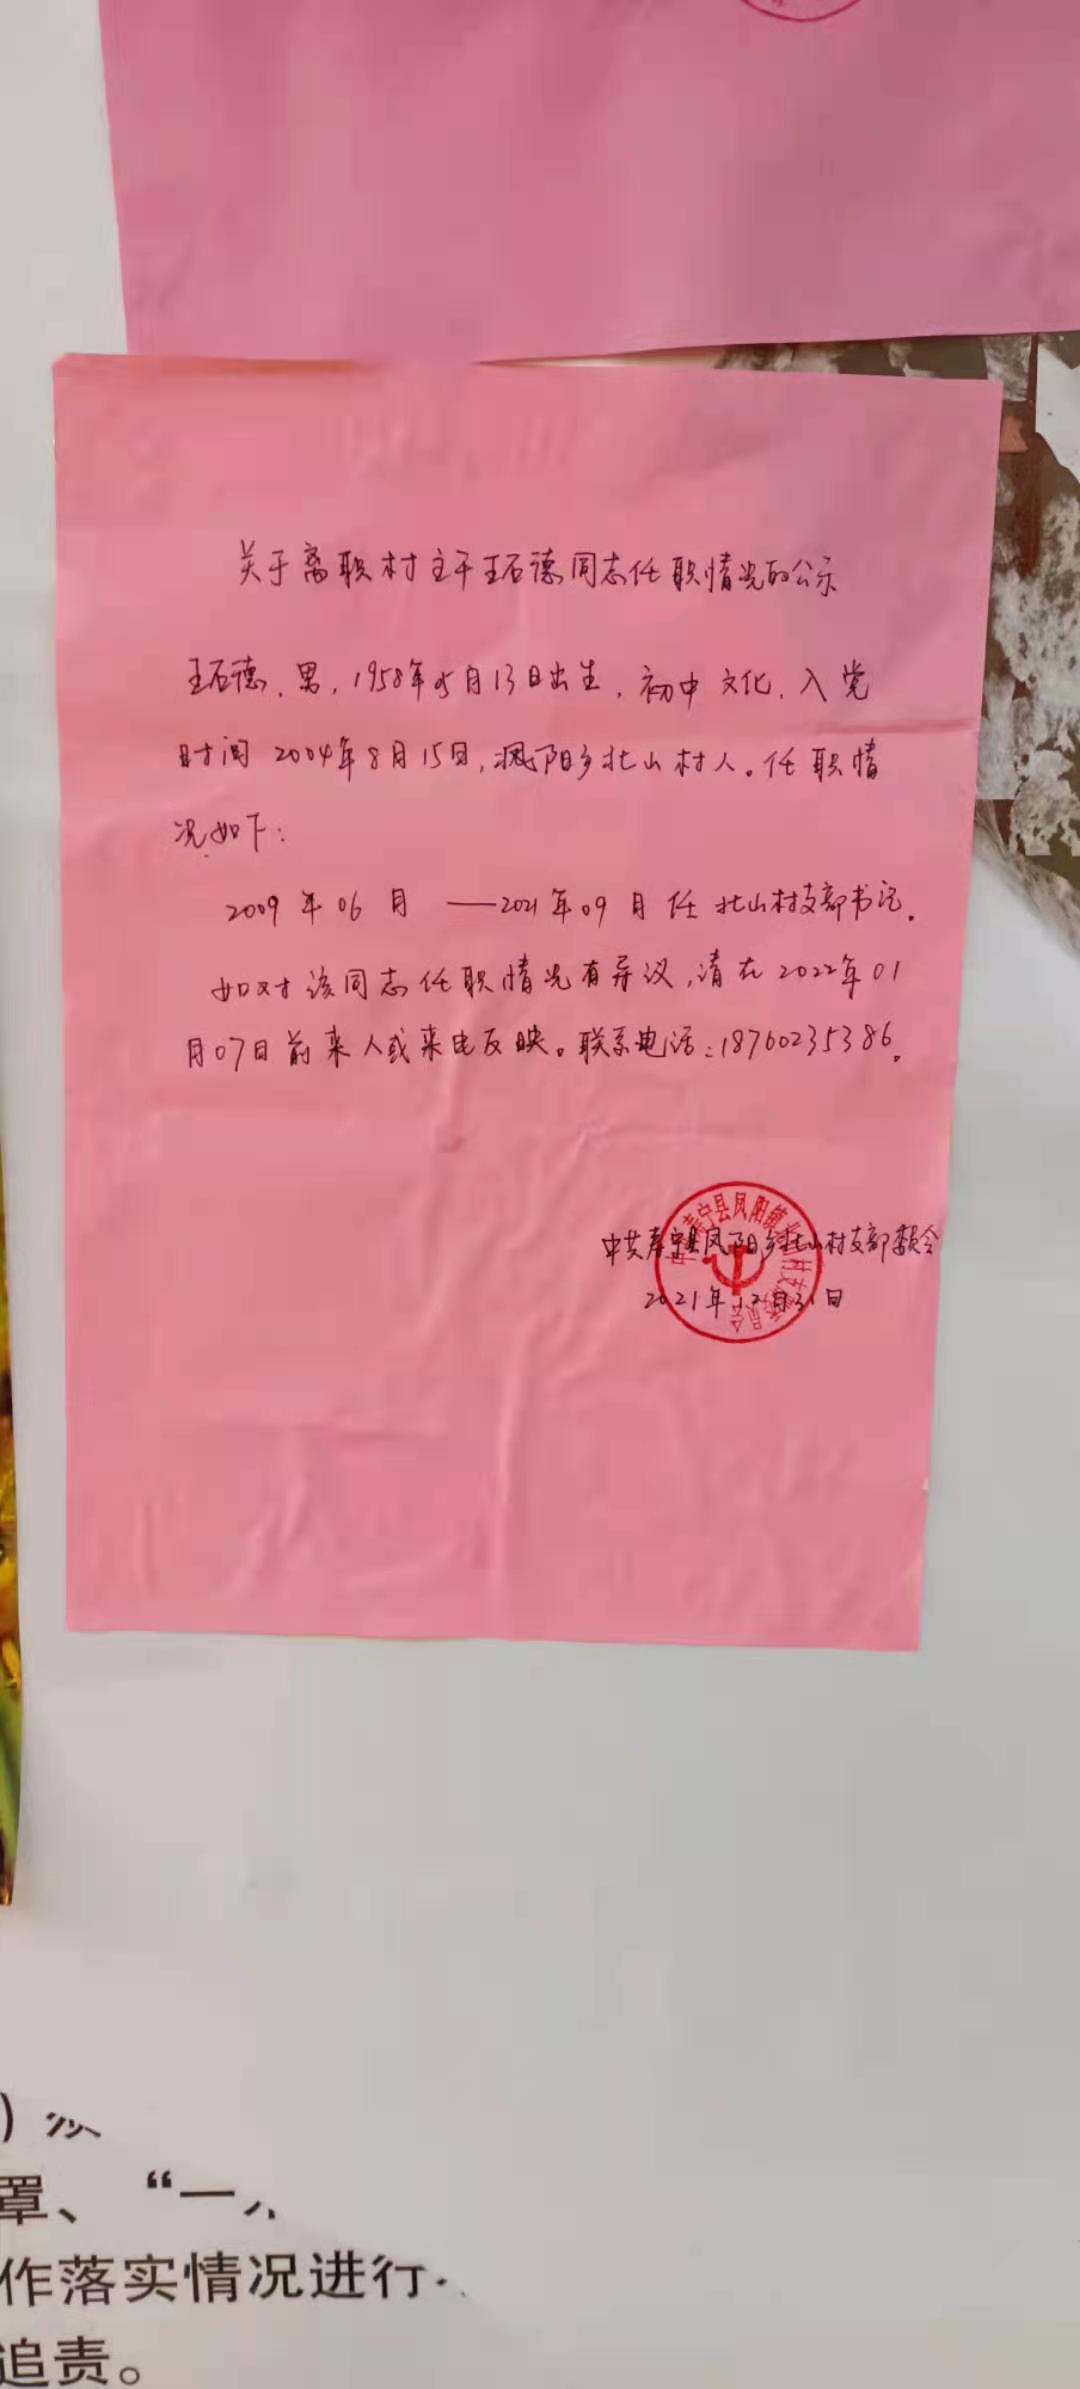 关于离职村主干王石德同志任职情况的公示
王石德，男，1958年05月13日出生，初中文化，入党
时间2004年8月15日，凤阳乡北山村人。任职情
况如下：
2009年06月——2021年09月任北山村支部书记。
如对该同志任职情况有异议，请在2022年01
月07日前来人或来电反映。联系电话：18760235386。
中共寿宁县凤阳乡北山村支部委员会
2021年12月31日
罩、“一
作落实情况进行
追责。